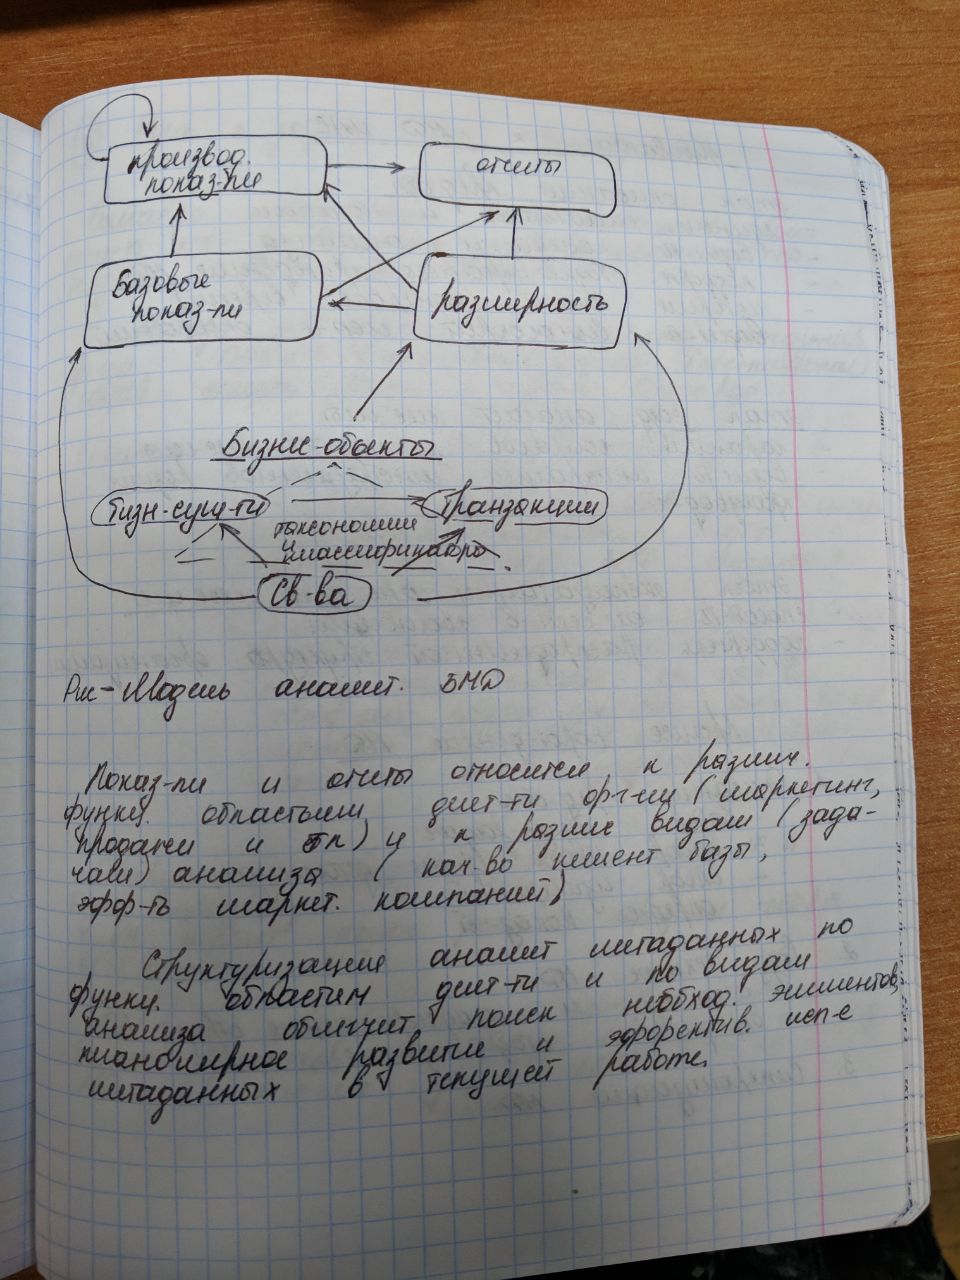 производ.
показ-ли
отчеты
Базовые
показ-ли
размерность
Бизнес-объекты
бизн-сущ-ти
транзакции
таксономии
и
классификаторы
Св-ва
Рис-Модель аналит. БМД
Показ-ли и отчеты относятся к различ.
функц. областям деят-ти орг-ии (маркетинг,
продажи и тп) и к разные видам (зада-
чам) анализа (кач-во клиент базы,
эфф-ть маркет. компаний)
Структуризация аналит метаданных по
функц. областям деят-ти и по видам
анализа облегчит поиск необход. элементов,
планомерное развитие и эффектив. исп-е
метаданных в текущей работе.